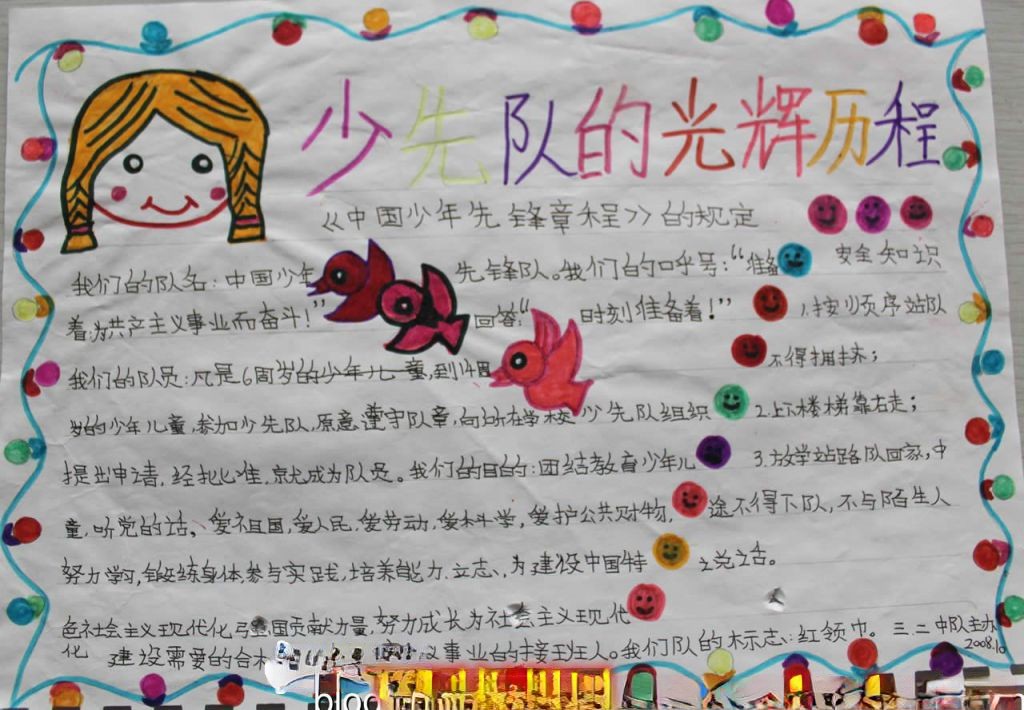 少先队的光辉历程
《中国少年先锋章程》的规定
我们的队名：中国少年先锋队。我们的口乎号：“准备
着为共产主义事业而奋斗！”回答：“时刻准备着！”
我们的队员：凡是6周岁的少年儿童，到14周
岁的少年儿童，参加少先队，原意遵守队章，向所在学校少先队组织
提出申请，经批准，就成为队员。我们的目的：团结教育少年儿
童，听党的话、爱祖国，爱人民，爱劳动，爱科学，爱护公共财物，
努力学习，锻练身体，参与实践，培养能力，立志，为建设中国特
色社会主义现代化国贡献力量，努力成长为社会主义现代
化建设需要的合义事业的接班人。我们队的标志：红领巾。
安全知识
1.按顺序站队
不得拥挤；
2.上下楼梯靠右走；
3.放学站路队回家，中
途不得下队，不与陌生人
说话。
三.二中队主办
2008.10
blog